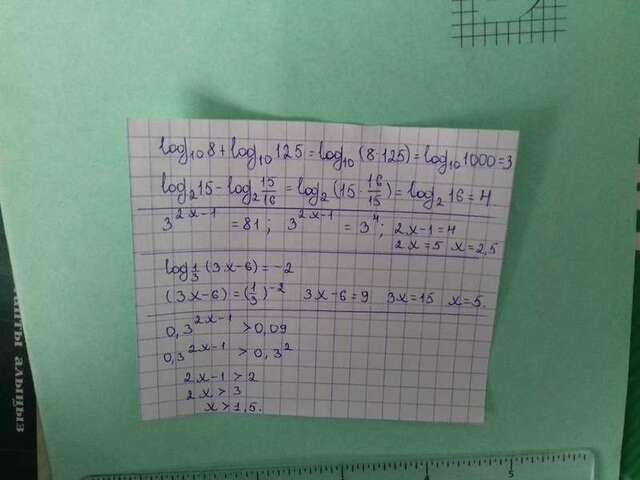 ТАПТЫ АЛЫҢЫЗ
log₁₀8+log₁₀125=log₁₀(8·125)=log₁₀1000=3
log₂15-log₂15/16=log₂(15·16/15)=log₂16=4
3^(2x-1)=81; 3^(2x-1)=3⁴; 2x-1=4
2x=5 x=2,5
log_(1/3)(3x-6)=-2
(3x-6)=(1/3)^-2 3x-6=9 3x=15 x=5
0,3^(2x-1)>0,09
0,3^(2x-1)>0,3²
2x-1>2
2x>3
x>1,5.
5